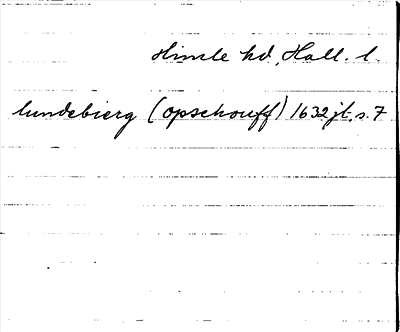 Himle hd, Hall. l.
lundebierg (opschouff) 1632 jb. s. 7